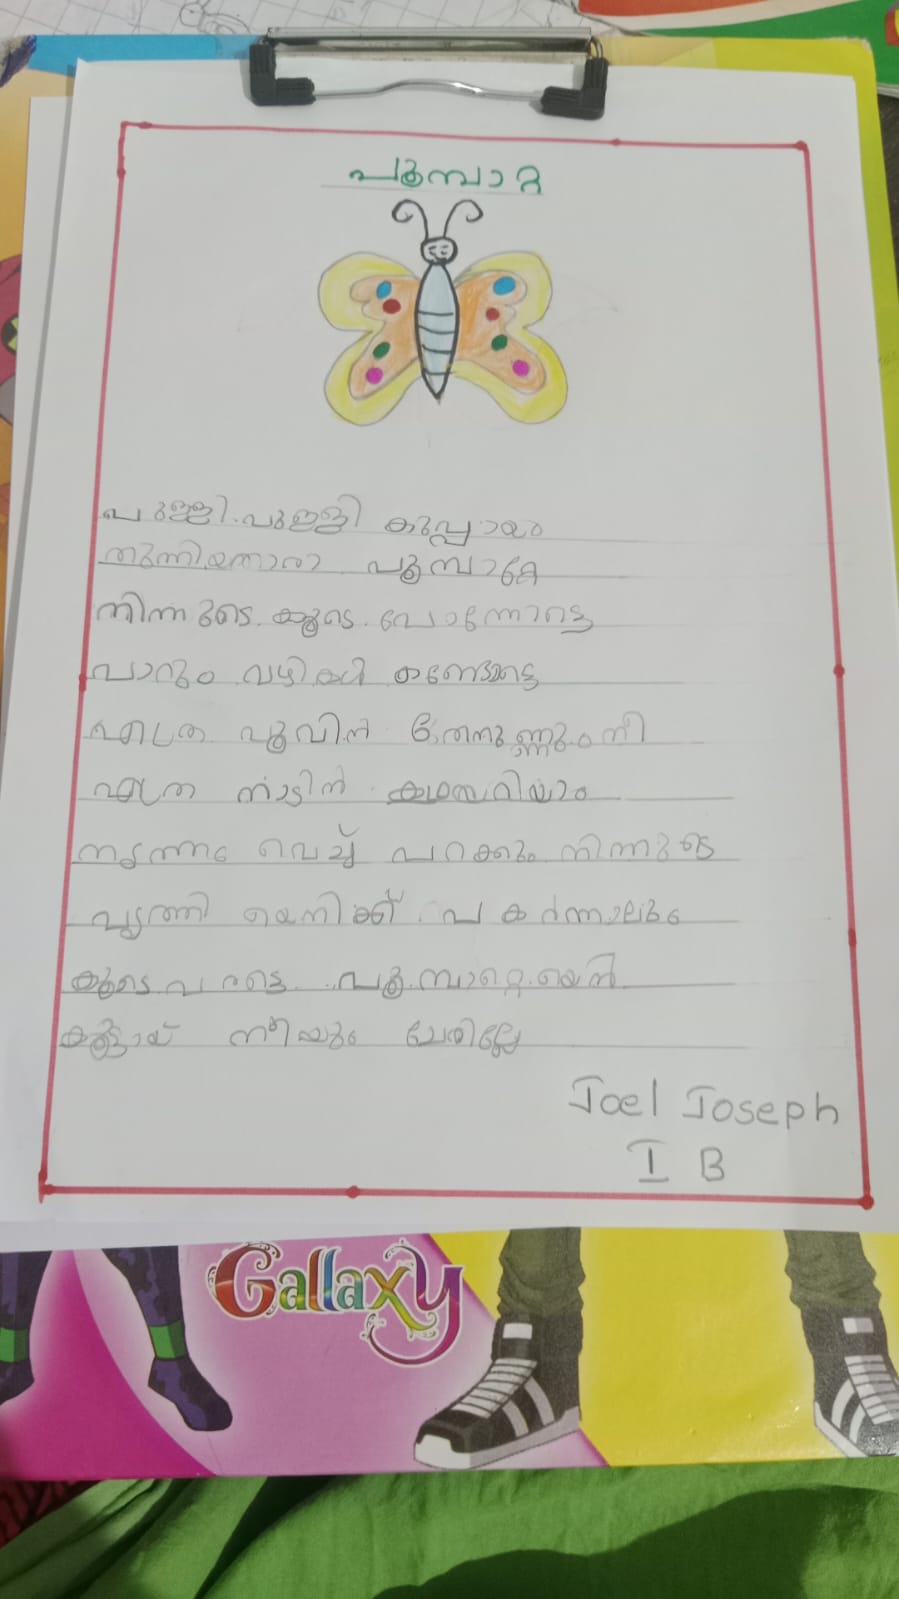 പൂമ്പാറ്റ
പുള്ളി പുള്ളി കുപ്പായം
തുന്നിയതാരാ പൂമ്പാറ്റേ
നിന്നുടെ കൂടെ പോന്നോട്ടെ
പാറും വഴികൾ കണ്ടോട്ടെ
എത്ര പൂവിൻ തേനുണ്ണും നീ
എത്ര നാടിൻ കഥയറിയാം
നൃത്തം വെച്ച് പറക്കും നിന്നുടെ
വൃത്തി യെനിക്ക് പകർന്നാലും
കൂടെ വരട്ടെ പൂമ്പാറ്റെ യെൻ
കൂട്ടായ് നീയും ചേരില്ലേ
Joel Joseph
I B
Gallaxy